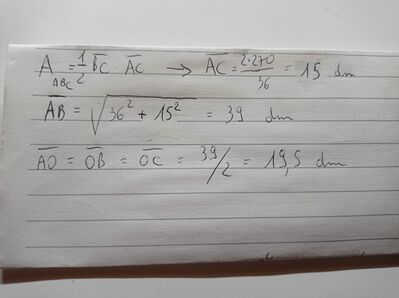 A_ABC = 1/2 B̅C̅ A̅C̅ → A̅C̅ = 2·270/36 = 15 dm
A̅B̅ = √(36² + 15²) = 39 dm
A̅O̅ = O̅B̅ = O̅C̅ = 39/2 = 19,5 dm